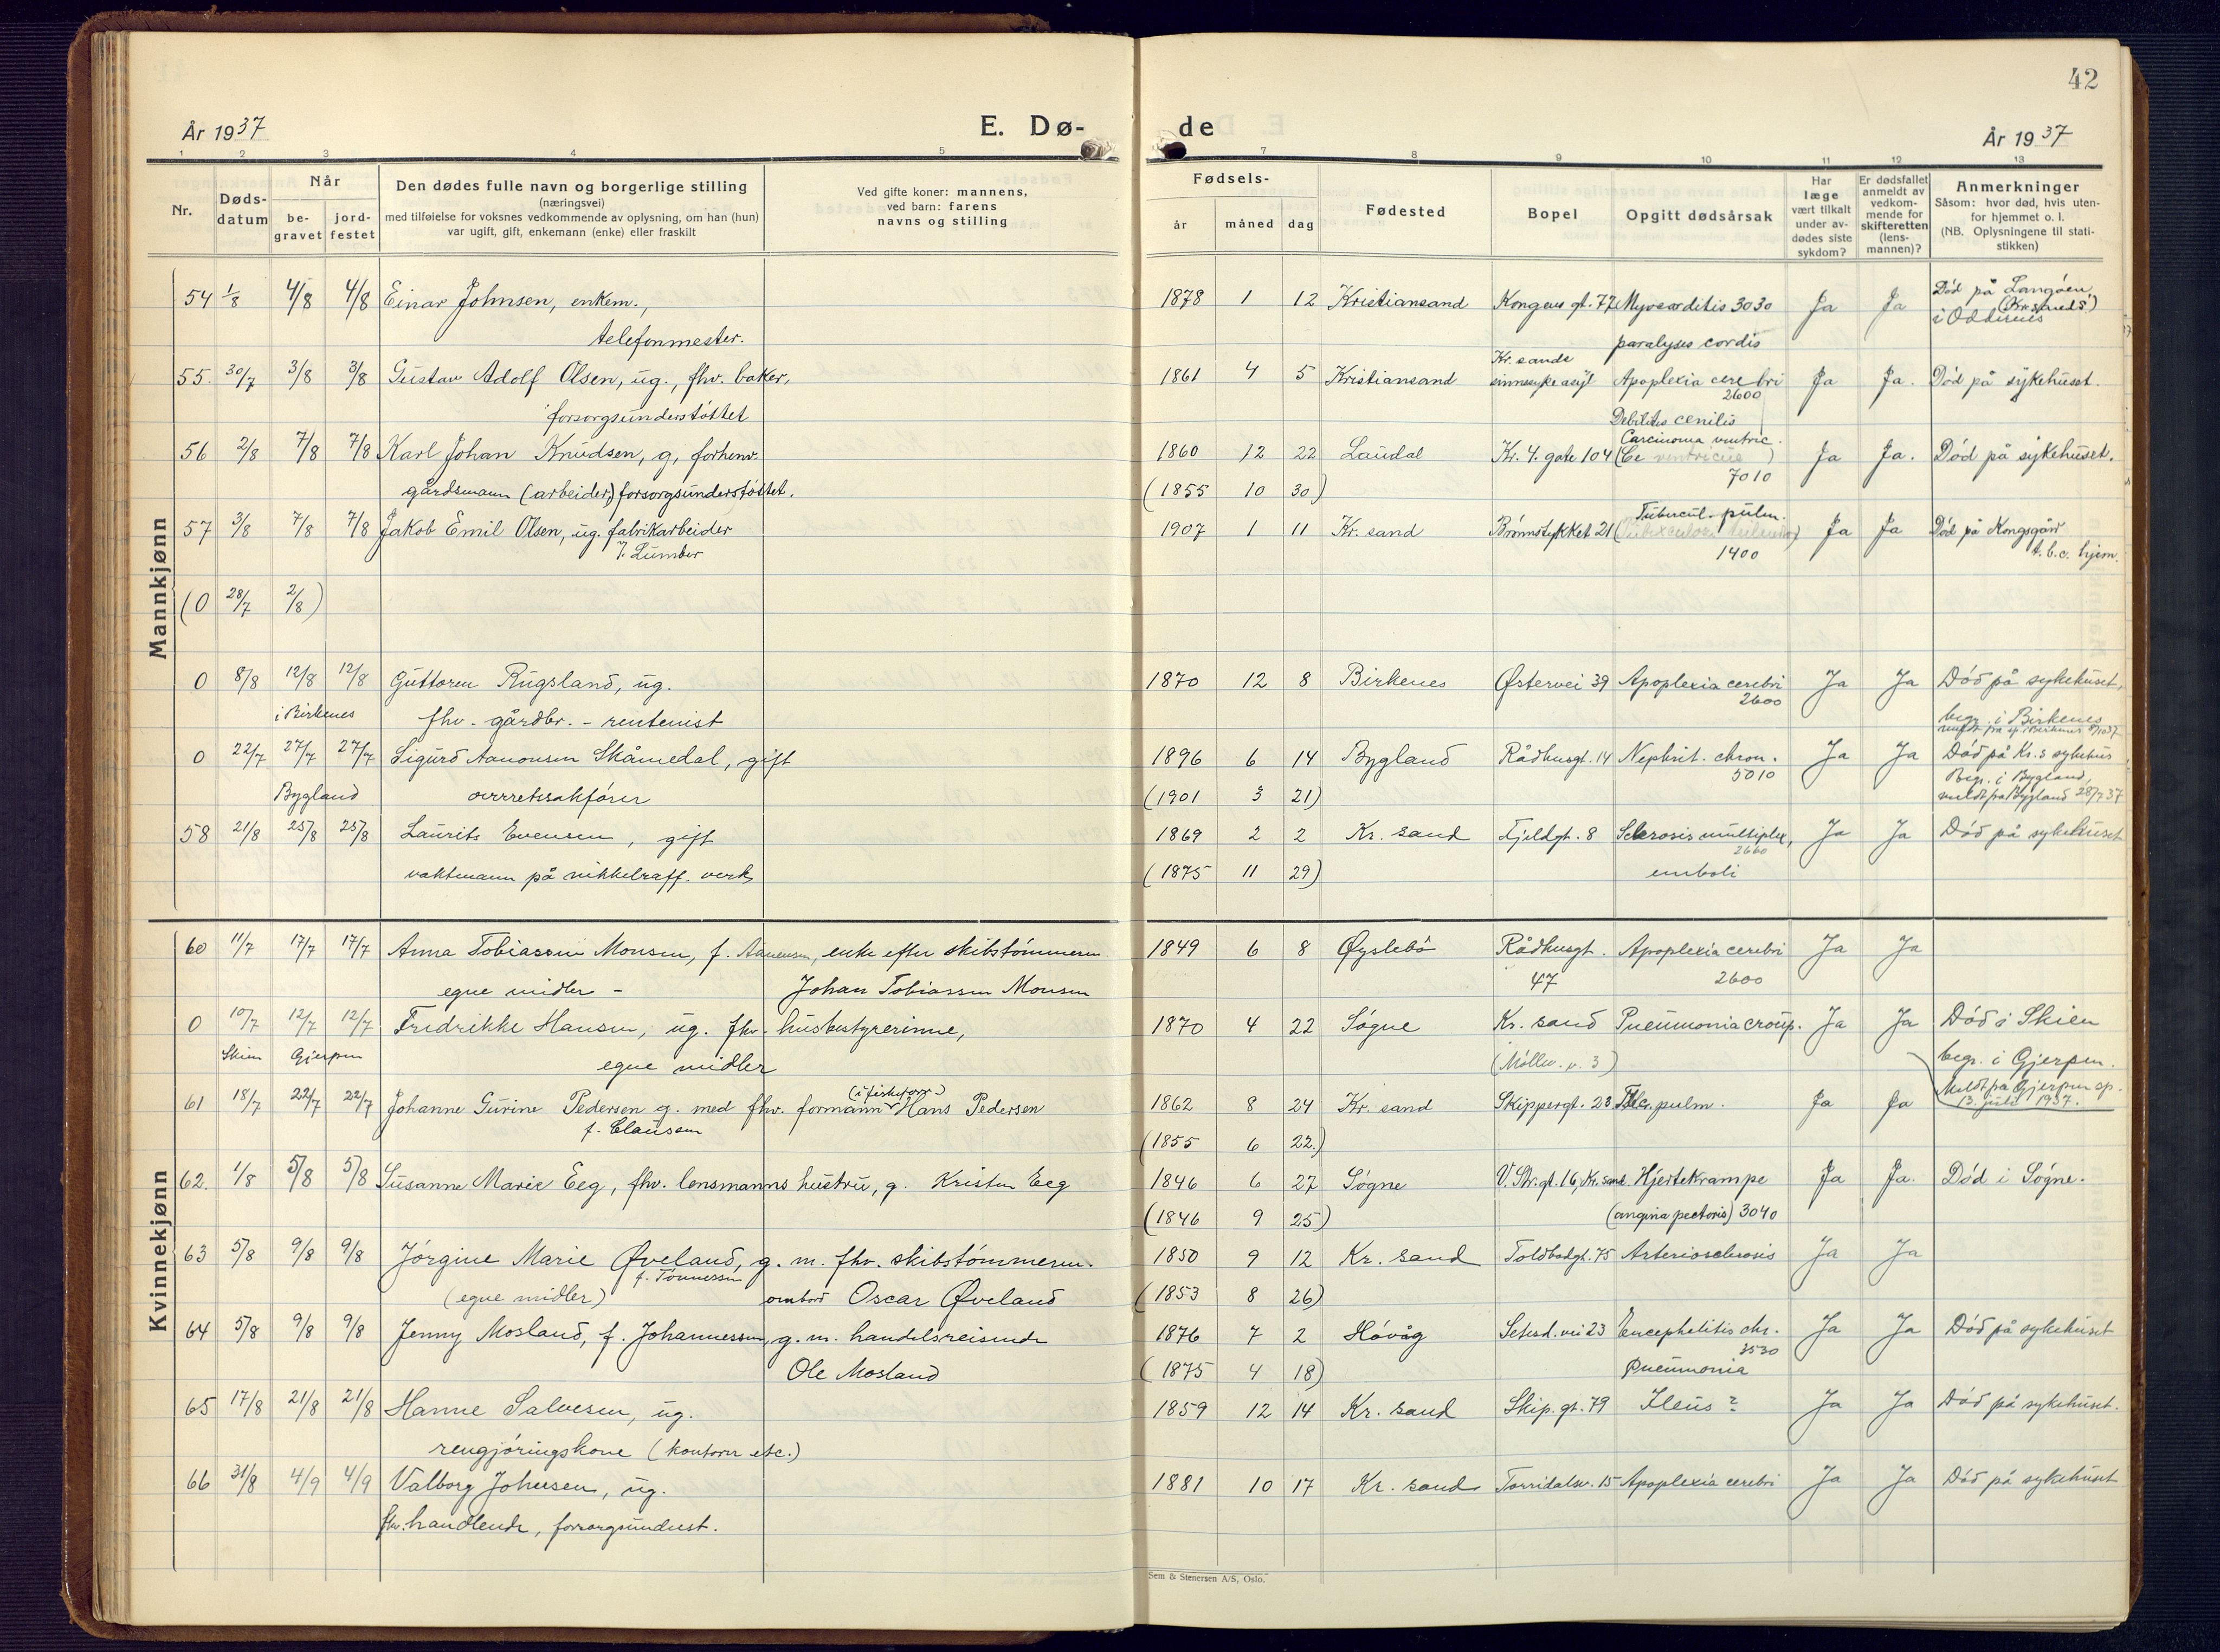 42
År 1937
E. Dø-
de
År 1937
1 2 3 4 5 7 8 9 10 11 12 13
Nr.
Døds-
datum
Når
be-
gravet
jord-
festet
Den dødes fulle navn og borgerlige stilling
(næringsvei)
med tilføielse for voksnes vedkommende av oplysning, om han (hun)
var ugift, gift, enkemann (enke) eller fraskilt
Ved gifte koner: mannens,
ved barn: farens
navns og stilling
Fødsels-
år måned dag
Fødested
Bopel
Opgitt dødsårsak
Har
læge
vært tilkalt
under av-
dødes siste
sykdom?
Er dødsfallet
anmeldt av
vedkom-
mende for
skifteretten
(lens-
mannen)?
Anmerkninger
Såsom: hvor død, hvis uten-
for hjemmet o. l.
(NB. Oplysningene til stati-
stikken)
Mannkjønn
54 1/8 4/8 4/8 Einar Johnsen, enkem., 1878 1 12 Kristiansand Kongens gt. 77 Myocarditis 3030 Ja Ja Død på Langøen
(Kr.sands)
i Oddernes
telefonmester. paralyses cordis
55. 30/7 3/8 3/8 Gustav Adolf Olsen, ug., fhv. baker, 1861 4 5 Kristiansand Kr. sands
sinnssykeasyl Apoplexia cerebri
2600 Ja Ja. Død på sykehuset.
forsorgsunderstøttet Debilitas cenilis
56 2/8 7/8 7/8 Karl Johan Knudsen, g, forhenv. 1860 12 22 Laudal Kr. 4. gate 104 Carcinoma ventric.
(Ce ventricus)
7010 Ja Ja. Død på sykehuset.
gårdsmann (arbeider,) forsorgsunderstøttet. (1855 10 30)
57 3/8 7/8 7/8 Jakob Emil Olsen, ug. fabrikarbeider 1907 1 11 Kr. sand Brønnstykket 21 Tubercul. pulm.
1400 Ja Ja Død på Kongsgård
t.b.c. hjem.
v. Lumber
(0 28/7 2/8)
0 8/8 12/8 12/8 Guttorm Rugsland, ug. 1870 12 8 Birkenes Østervei 39 Apoplexia cerebri
2600 Ja Ja Død på sykehuset,
i Birkenes fhv. gårdbr. - rentenist begr. i Birkenes
meldt fra sp. i Birkenes
0 22/7 27/7 27/7 Sigurd Aanonsen Skåmedal, gift 1896 6 14 Bygland Rådhusgt. 14 Nephrit. chron.
5010 Ja Ja Død på Kr.s sykehus
Bygland overretssakfører (1901 3 21) Begr. i Bygland,
meldt fra Bygland 28/7 37
58 21/8 25/8 25/8 Laurits Evensen, gift 1869 2 2 Kr. sand Fjeldgt. 8 Sclerosis multiplex,
2660 Ja Ja Død på sykehuset
vaktmann på nikkelraff. verk (1875 11 29) emboli
Kvinnekjønn
60 11/7 17/7 17/7 Anna Tobiassen Monsen, f. Aanensen, enke efter skibstømmerm. 1849 6 8 Øyslebø Rådhusgt. Apoplexia cerebri Ja Ja
egne midler - Johan Tobiassen Monsen 47 2600
0 10/7 12/7 12/7 Fredrikke Hansen, ug. fhv. husbestyrerinne, 1870 4 22 Søgne Kr. sand Pneumonia croup. Ja Ja Død i Skien
Skien Gjerpen egne midler (Møllev. v. 3) begr. i Gjerpen.
Meldt fra Gjerpen sp.
13. juli 1937.
61 18/7 22/7 22/7 Johanne Gurine Pedersen g. med fhv. formann (i fiskeforr.) Hans Pedersen 1862 8 24 Kr. sand Skippergt. 23 Tblc. pulm. Ja Ja
f. Clausen (1855 6 22.)
62. 1/8 5/8 5/8 Susanne Marie Eeg, fhv. lensmanns hustru, g. Kristen Eeg 1846 6 27 Søgne V. Str.gt. 16, Kr. sand Hjertekrampe Ja Ja. Død i Søgne.
(1846 9 25) (angina pectoris) 3040
63 5/8 9/8 9/8 Jørgine Marie Øveland, g. m. fhv. skibstømmerm. 1850 9 12 Kr. sand Toldbodgt. 75 Arteriosclerosis Ja Ja
(egne midler) f. Tønnessen ombord Oscar Øveland (1853 8 26)
64 5/8 9/8 9/8 Jenny Mosland, f. Johannessen, g. m. handelsreisende 1876 7 2 Høvåg Setesd. vei 23 Encephelitis chr.
3530 Ja Ja Død på sykehuset
Ole Mosland (1875 4 18) Pneumonia
65 17/8 21/8 21/8 Hanne Salvesen, ug. 1859 12 14 Kr. sand Skip. gt. 79 Ileus ? Ja Ja Død på sykehuset.
rengjøringskone (kontorer etc.)
66 31/8 4/9 4/9 Valborg Johnsen, ug. 1881 10 17 Kr. sand Torridalsv. 15 Apoplexia cerebri Ja Ja Død på sykehuset
fhv. handlende, forsorgsunderst.
Sem & Stenersen A/S, Oslo.